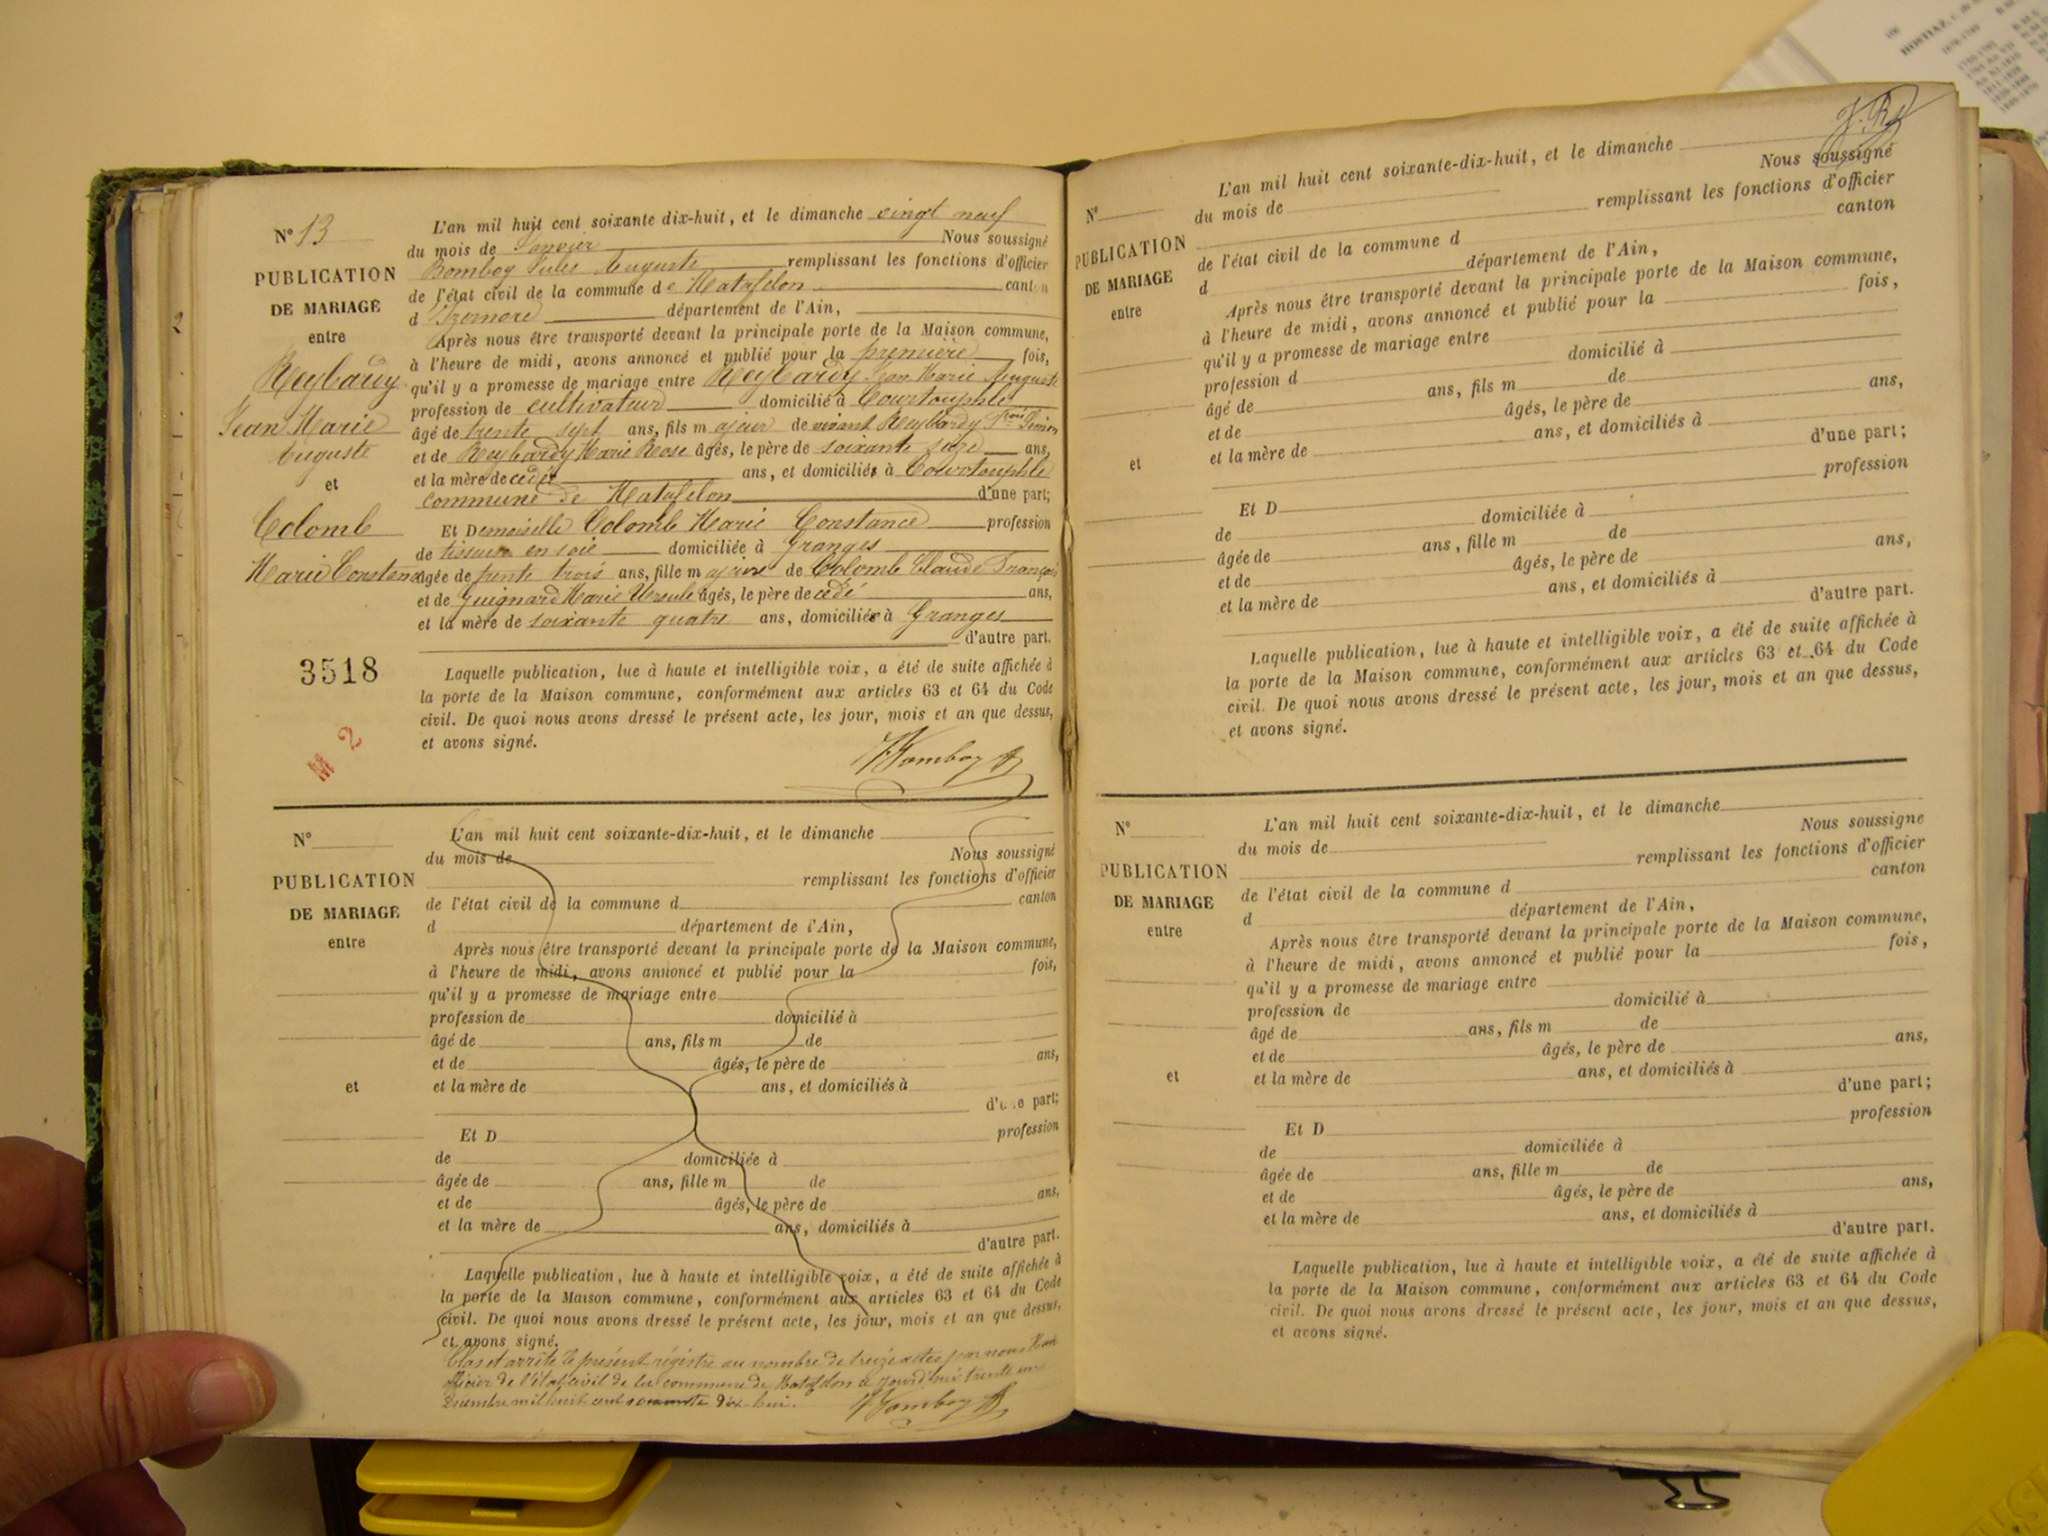 N° 13
PUBLICATION
DE MARIAGE
entre
Reybardy
Jean Marie
Auguste
et
Colomb
Marie Constance
3518
M 2
L'an mil huit cent soixante dix-huit, et le dimanche vingt neuf
du mois de Janvier Nous soussigné
Bomboy Jules Auguste remplissant les fonctions d'officier
de l'état civil de la commune de Matafelon canton
d'Izernore département de l'Ain,
Après nous être transporté devant la principale porte de la Maison commune,
à l'heure de midi, avons annoncé et publié pour la première fois,
qu'il y a promesse de mariage entre Reybardy Jean Marie Auguste
profession de cultivateur domicilié à Courtouphle
âgé de trente sept ans, fils majeur de vivant Reybardy
et de Reybardy Marie Rose âgés, le père de soixante seize ans,
et la mère de cédée ans, et domiciliés à Courtouphle
commune de Matafelon d'une part;
Et Demoiselle Colomb Marie Constance profession
de tisseuse en soie domiciliée à Granges
âgée de trente trois ans, fille majeure de Colomb Claude François
et de Guignard Marie Ursule âgés, le père de cédé ans,
et la mère de soixante quatre ans, domiciliés à Granges
d'autre part.
Laquelle publication, lue à haute et intelligible voix, a été de suite affichée à
la porte de la Maison commune, conformément aux articles 63 et 64 du Code
civil. De quoi nous avons dressé le présent acte, les jour, mois et an que dessus,
et avons signé.
Bomboy
N°
PUBLICATION
DE MARIAGE
entre
et
L'an mil huit cent soixante-dix-huit, et le dimanche
du mois de Nous soussigné
remplissant les fonctions d'officier
de l'état civil de la commune d canton
d département de l'Ain,
Après nous être transporté devant la principale porte de la Maison commune,
à l'heure de midi, avons annoncé et publié pour la fois,
qu'il y a promesse de mariage entre
profession de domicilié à
âgé de ans, fils m de
et de âgés, le père de ans,
et la mère de ans, et domiciliés à
d'une part;
Et D profession
de domiciliée à
âgée de ans, fille m de
et de âgés, le père de ans,
et la mère de ans, domiciliés à
d'autre part.
Laquelle publication, lue à haute et intelligible voix, a été de suite affichée à
la porte de la Maison commune, conformément aux articles 63 et 64 du Code
civil. De quoi nous avons dressé le présent acte, les jour, mois et an que dessus,
et avons signé.
Clos et arrêté le présent régistre au nombre de treize actes par nous
officier de l'état civil de la commune de Matafelon ce jourd'hui trente un
Décembre mil huit cent soixante dix-huit.
Bomboy
N°
PUBLICATION
DE MARIAGE
entre
et
L'an mil huit cent soixante-dix-huit, et le dimanche
du mois de Nous soussigné
remplissant les fonctions d'officier
de l'état civil de la commune d canton
d département de l'Ain,
Après nous être transporté devant la principale porte de la Maison commune,
à l'heure de midi, avons annoncé et publié pour la fois,
qu'il y a promesse de mariage entre
profession d domicilié à
âgé de ans, fils m de
et de âgés, le père de ans,
et la mère de ans, et domiciliés à
d'une part;
Et D profession
de domiciliée à
âgée de ans, fille m de
et de âgés, le père de ans,
et la mère de ans, et domiciliés à
d'autre part.
Laquelle publication, lue à haute et intelligible voix, a été de suite affichée à
la porte de la Maison commune, conformément aux articles 63 et 64 du Code
civil. De quoi nous avons dressé le présent acte, les jour, mois et an que dessus,
et avons signé.
N°
PUBLICATION
DE MARIAGE
entre
et
L'an mil huit cent soixante-dix-huit, et le dimanche
du mois de Nous soussigné
remplissant les fonctions d'officier
de l'état civil de la commune d canton
d département de l'Ain,
Après nous être transporté devant la principale porte de la Maison commune,
à l'heure de midi, avons annoncé et publié pour la fois,
qu'il y a promesse de mariage entre
profession de domicilié à
âgé de ans, fils m de
et de âgés, le père de ans,
et la mère de ans, et domiciliés à
d'une part;
Et D profession
de domiciliée à
âgée de ans, fille m de
et de âgés, le père de ans,
et la mère de ans, et domiciliés à
d'autre part.
Laquelle publication, lue à haute et intelligible voix, a été de suite affichée à
la porte de la Maison commune, conformément aux articles 63 et 64 du Code
civil. De quoi nous avons dressé le présent acte, les jour, mois et an que dessus,
et avons signé.